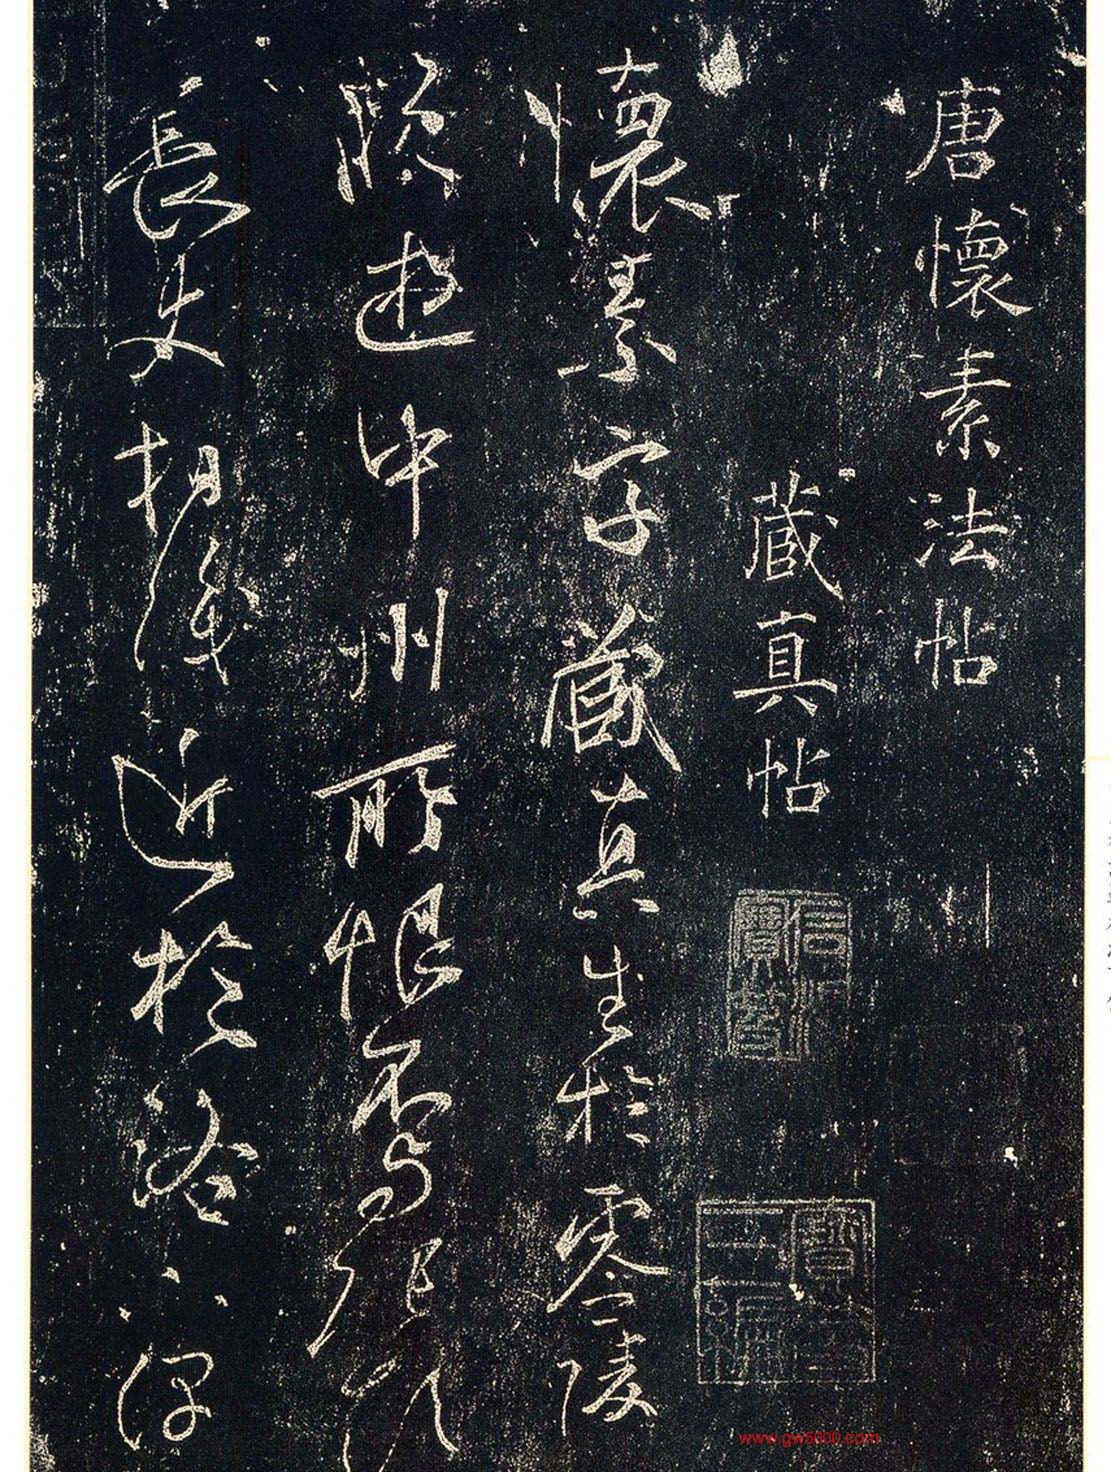 唐懷素法帖
藏真帖
懷素字藏真生於零陵
晚遊中州所恨不與張顛
長史相識近於洛下偶